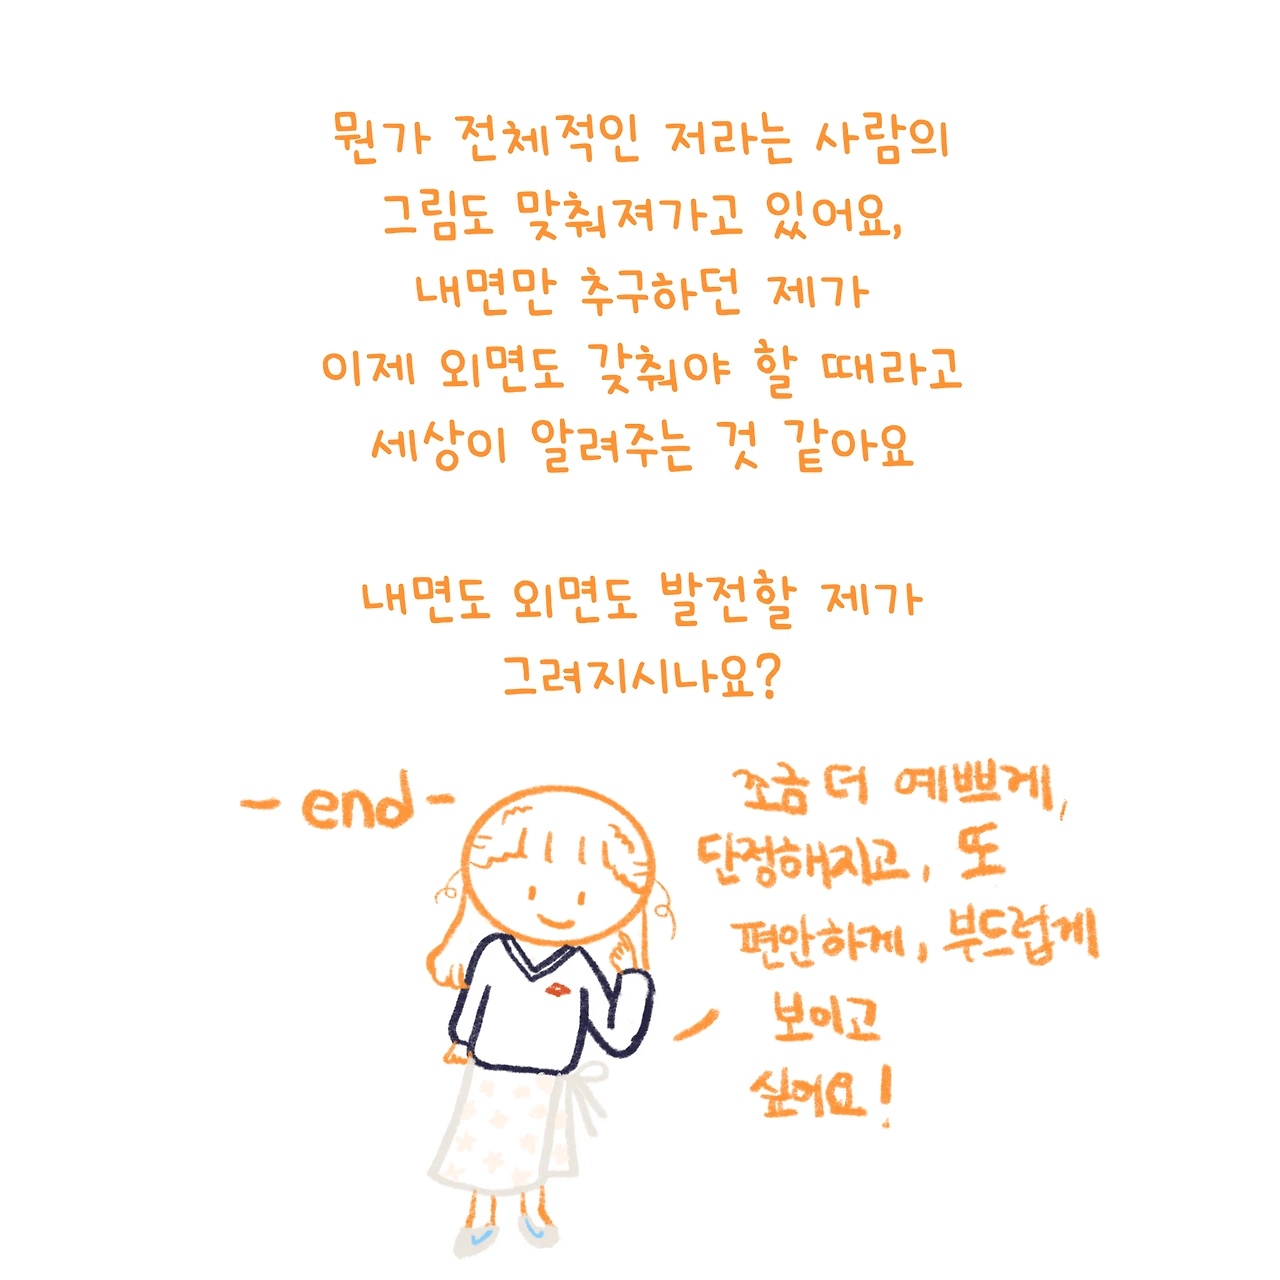 뭔가 전체적인 저라는 사람의
그림도 맞춰져가고 있어요,
내면만 추구하던 제가
이제 외면도 갖춰야 할 때라고
세상이 알려주는 것 같아요
내면도 외면도 발전할 제가
그려지시나요?
- end -
조금 더 예쁘게,
단정해지고, 또
편안하게, 부드럽게
보이고
싶어요!